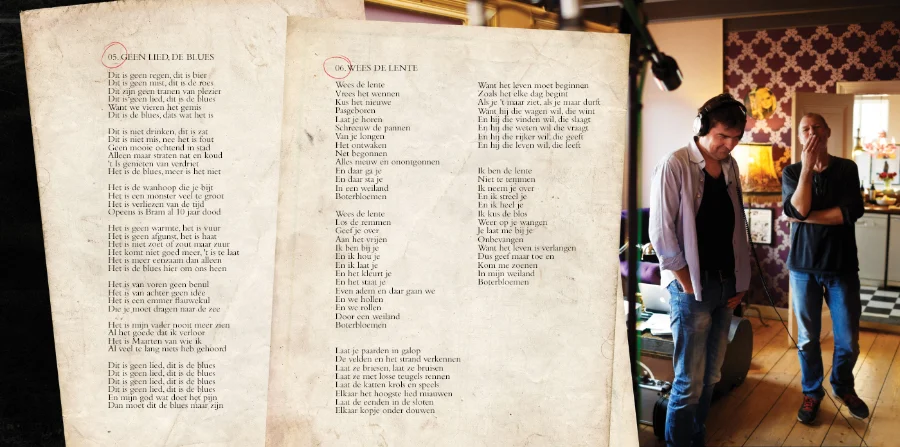 05. GEEN LIED, DE BLUES
Dit is geen regen, dit is bier
Dit is geen mist, dit is de roes
Dit zijn geen tranen van plezier
Dit is geen lied, dit is de blues
Want we vieren het gemis
Dit is de blues, dats wat het is
Dit is niet drinken, dit is zat
Dit is niet mis, nee het is fout
Geen mooie ochtend in stad
Alleen maar straten nat en koud
't Is genieten van verdriet
Het is de blues, meer is het niet
Het is de wanhoop die je bijt
Het is een monster veel te groot
Het is verliezen van de tijd
Opeens is Bram al 10 jaar dood
Het is geen warmte, het is vuur
Het is geen afgunst, het is haat
Het is niet zoet of zout maar zuur
Het komt niet goed meer, 't is te laat
Het is meer eenzaam dan alleen
Het is de blues hier om ons heen
Het is van voren geen benul
Het is van achter geen idee
Het is een emmer flauwekul
Die je moet dragen naar de zee
Het is mijn vader nooit meer zien
Al het goede dat ik verloor
Het is Maarten van wie ik
Al veel te lang niets heb gehoord
Dit is geen lied, dit is de blues
Dit is geen lied, dit is de blues
Dit is geen lied, dit is de blues
Dit is geen lied, dit is de blues
En mijn god wat doet het pijn
Dan moet dit de blues maar zijn
06. WEES DE LENTE
Wees de lente
Vrees het wennen
Kus het nieuwe
Pasgeboren
Laat je horen
Schreeuw de pannen
Van je longen
Het ontwaken
Net begonnen
Alles nieuw en onontgonnen
En daar ga je
En daar sta je
In een weiland
Boterbloemen
Wees de lente
Los de remmen
Geef je over
Aan het vrijen
Ik ben bij je
En ik hou je
En ik laat je
En het kleurt je
En het staat je
Even adem en daar gaan we
En we hollen
En we rollen
Door een weiland
Boterbloemen
Laat je paarden in galop
De velden en het strand verkennen
Laat ze briesen, laat ze bruisen
Laat ze met losse teugels rennen
Laat de katten krols en speels
Elkaar het hoogste lied miauwen
Laat de eenden in de sloten
Elkaar kopje onder douwen
Want het leven moet beginnen
Zoals het elke dag begint
Als je 't maar ziet, als je maar durft
Want hij die wagen wil, die wint
En hij die vinden wil, die slaagt
En hij die weten wil die vraagt
En hij die rijker wil, die geeft
En hij die leven wil, die leeft
Ik ben de lente
Niet te temmen
Ik neem je over
En ik streel je
En ik heel je
Ik kus de blos
Weer op je wangen
Je laat me bij je
Onbevangen
Want het leven is verlangen
Dus geef maar toe en
Kom me zoenen
In mijn weiland
Boterbloemen